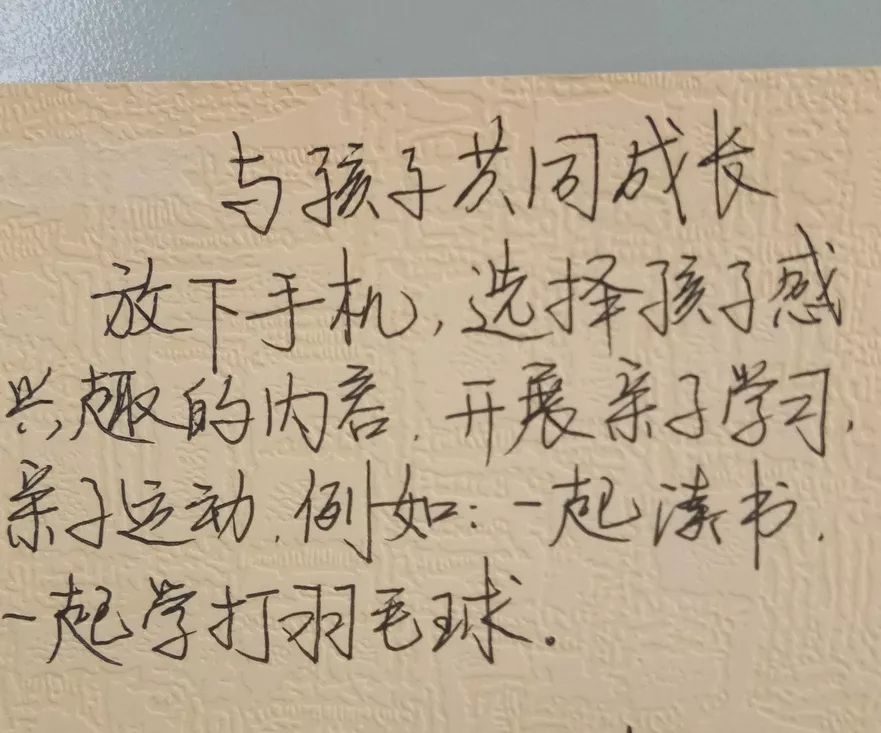 与孩子共同成长
放下手机,选择孩子感
兴趣的内容,开展亲子学习,
亲子运动,例如:一起读书,
一起学打羽毛球.